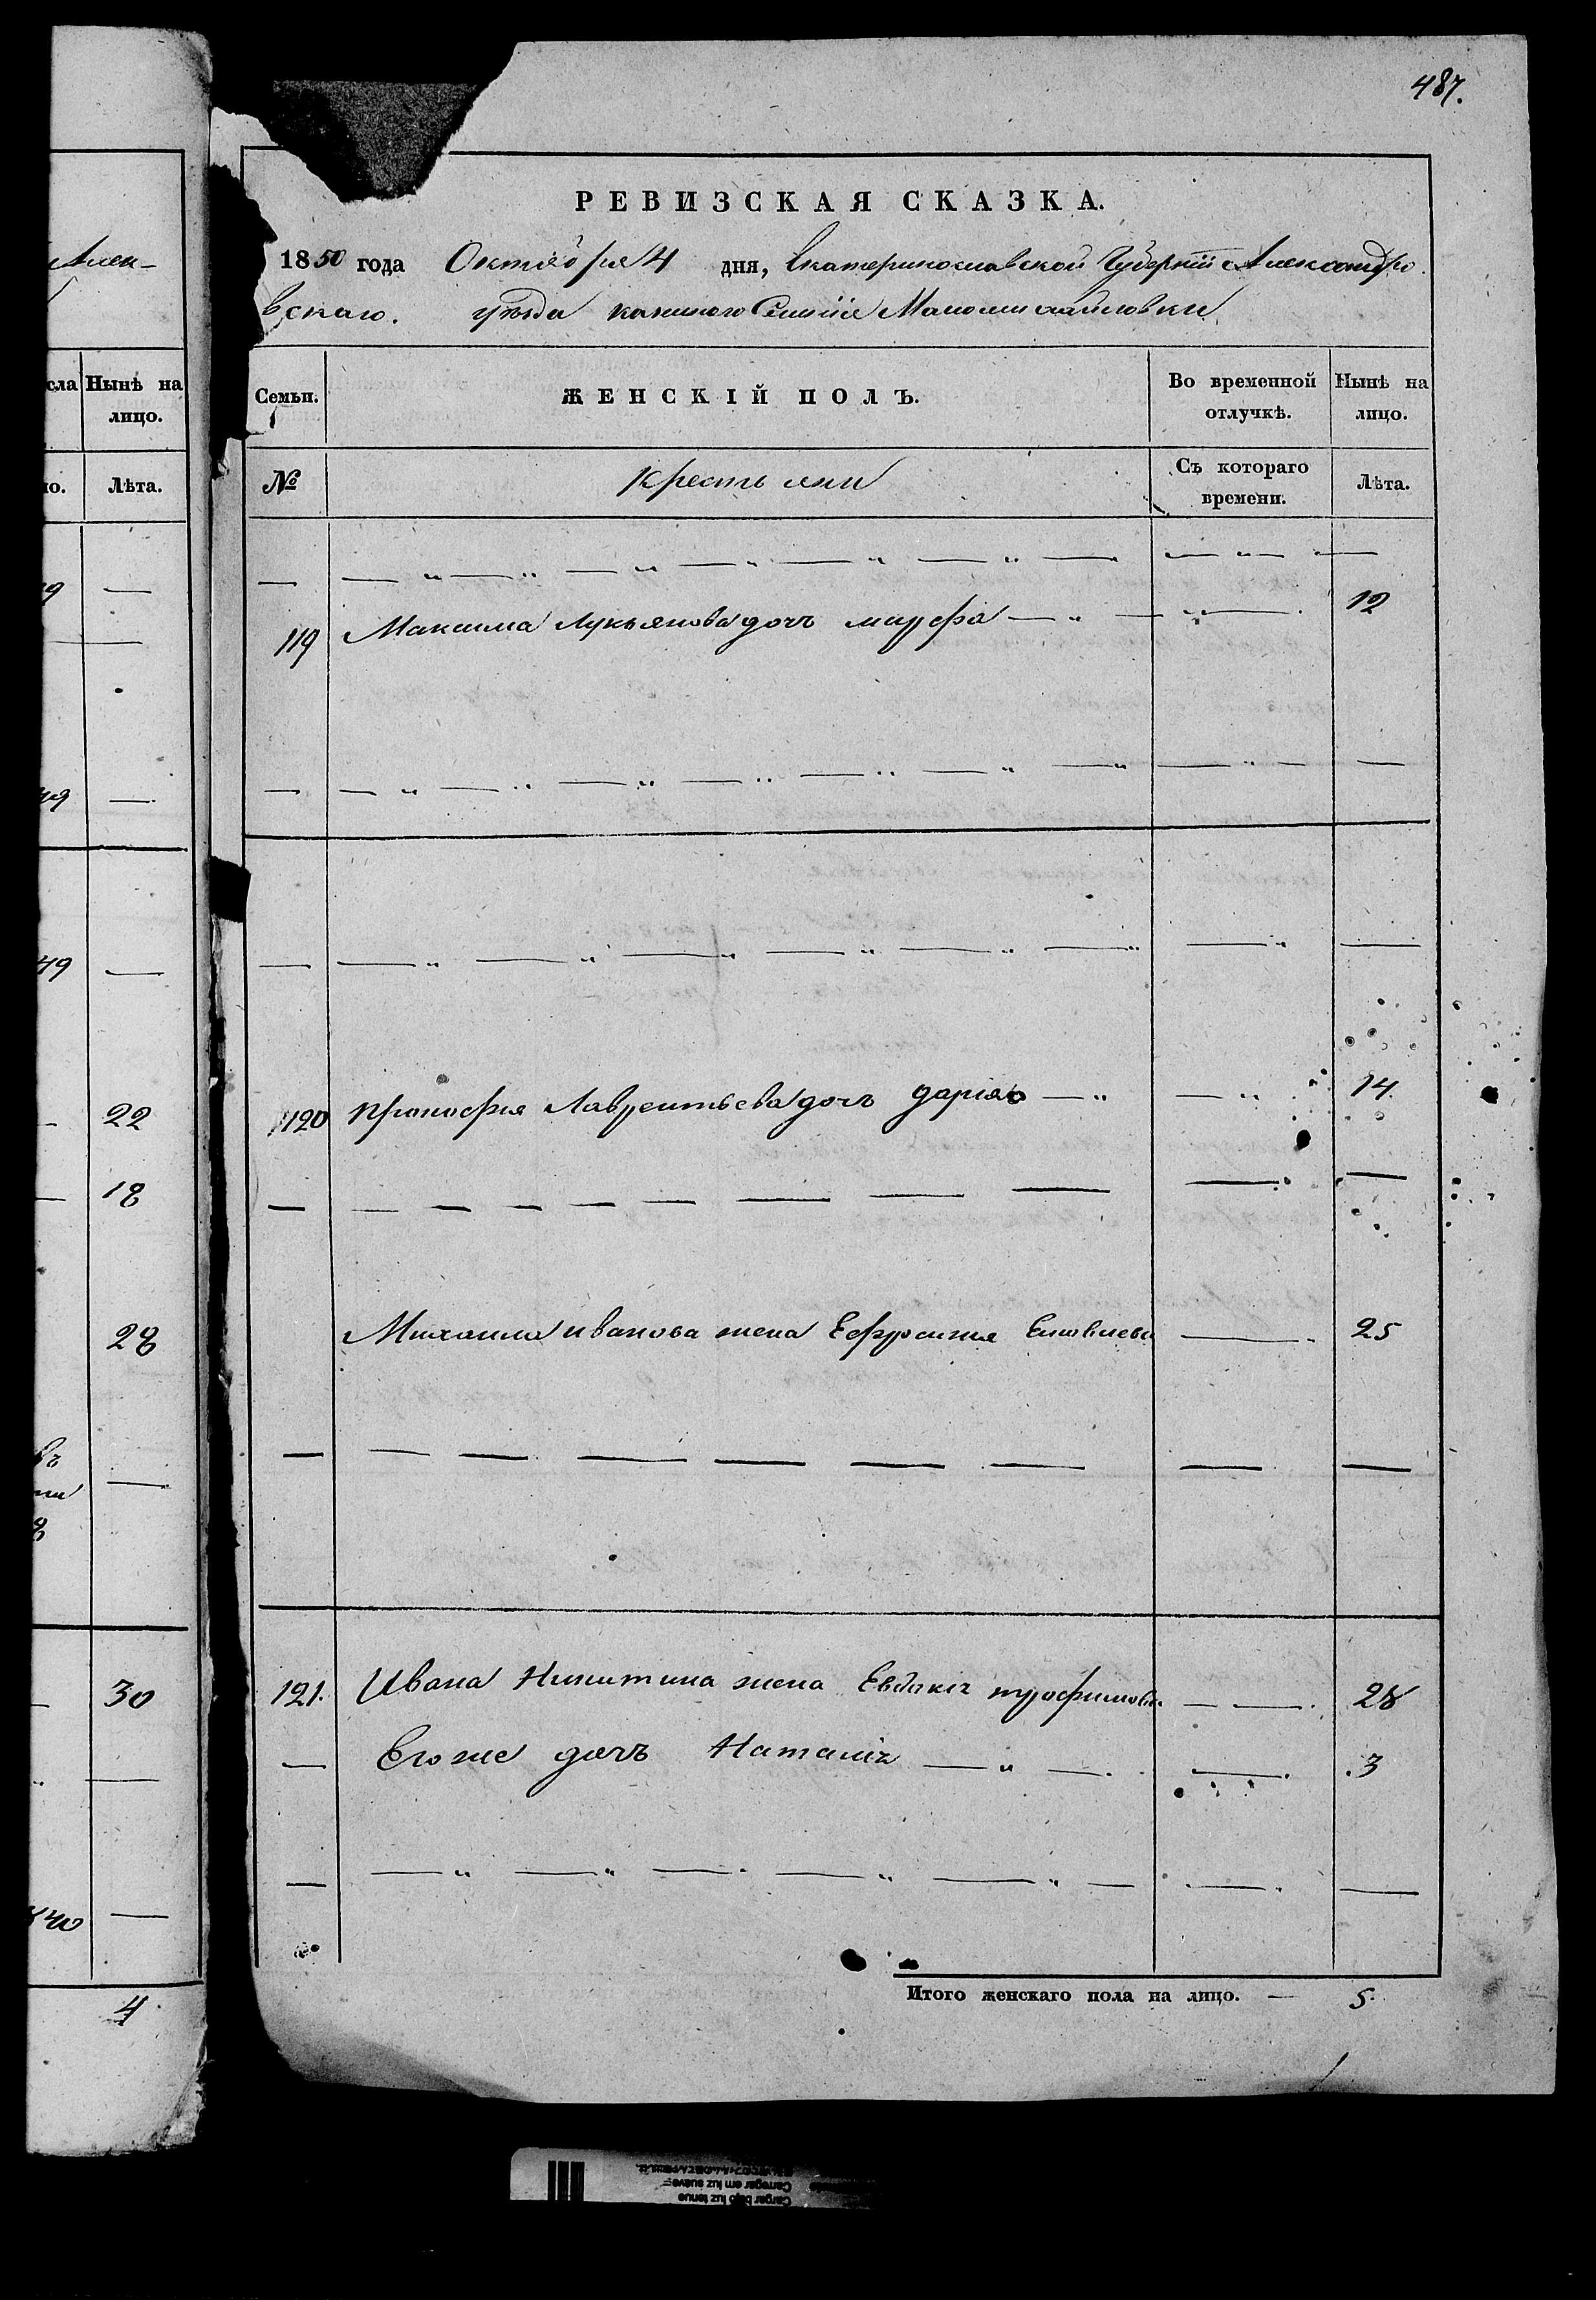 487.
Алек-
РЕВИЗСКАЯ СКАЗКА.
1850 года Октября 4 дня, Екатеринославской Губернии Александро
вскаго. уезда казенного Селения Маломихайловки
сла Нынѣ на лицо.
Лѣта.
Семьи. ЖЕНСКІЙ ПОЛЪ. Во временной отлучкѣ. Нынѣ на лицо.
№ Крестьяни Съ котораго времени. Лѣта.
119 Максима Лукьянова дочъ марфа — 12
120 Прокофия Лаврентьева дочъ дария — 14
Михаила иванова жена Ефросиния — 25
121. Ивана Никитина жена Евдокия трофимова — 28
Его же дочъ Наталия — 3
Итого женскаго пола на лицо. — 5.
22
18
28
30
4